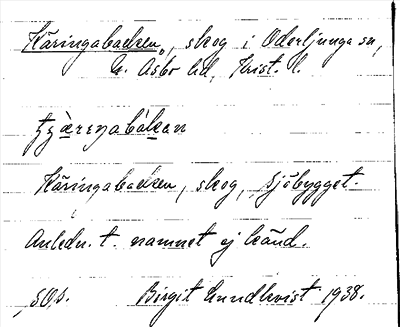 Käringabacken, skog i Oderljunga sn,
N. Åsbo hd, Krist. l.
Käringabacken, skog, Sjöbygget.
Anledn. t. namnet ej känd.
Birgit Lundkvist 1938.